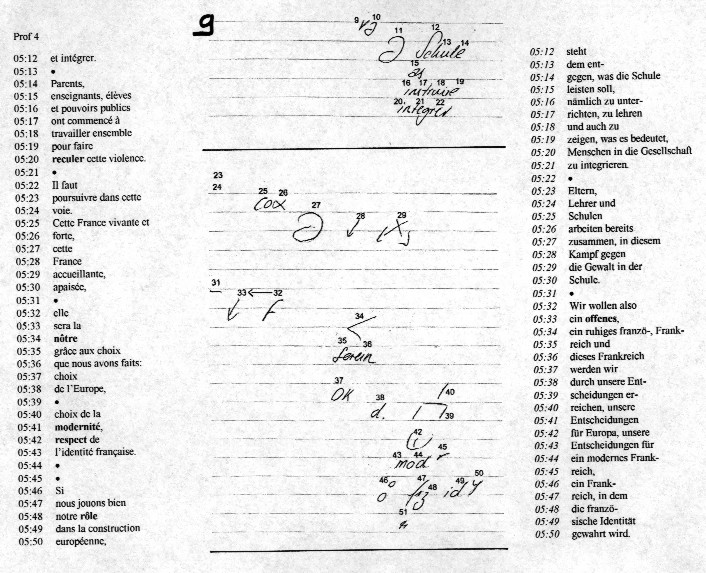 Prof 4
05:12 et intégrer.
05:13 •
05:14 Parents,
05:15 enseignants, élèves
05:16 et pouvoirs publics
05:17 ont commencé à
05:18 travailler ensemble
05:19 pour faire
05:20 reculer cette violence.
05:21 •
05:22 Il faut
05:23 poursuivre dans cette
05:24 voie.
05:25 Cette France vivante et
05:26 forte,
05:27 cette
05:28 France
05:29 accueillante,
05:30 apaisée,
05:31 •
05:32 elle
05:33 sera la
05:34 nôtre
05:35 grâce aux choix
05:36 que nous avons faits:
05:37 choix
05:38 de l'Europe,
05:39 •
05:40 choix de la
05:41 modernité,
05:42 respect de
05:43 l'identité française.
05:44 •
05:45 •
05:46 Si
05:47 nous jouons bien
05:48 notre rôle
05:49 dans la construction
05:50 européenne,
9
9 10
11 12 13 14
Schule
15
16 17 18 19
instruire
20 21 22
integrer
23
24
25 26
27
28 29
31
33 32
F
34
35 36
serein
37
OK
38
d.
40
39
42
43 44 45
mod r
46 47 48 49 50
id
51
05:12 steht
05:13 dem ent-
05:14 gegen, was die Schule
05:15 leisten soll,
05:16 nämlich zu unter-
05:17 richten, zu lehren
05:18 und auch zu
05:19 zeigen, was es bedeutet,
05:20 Menschen in die Gesellschaft
05:21 zu integrieren.
05:22 •
05:23 Eltern,
05:24 Lehrer und
05:25 Schulen
05:26 arbeiten bereits
05:27 zusammen, in diesem
05:28 Kampf gegen
05:29 die Gewalt in der
05:30 Schule.
05:31 •
05:32 Wir wollen also
05:33 ein offenes,
05:34 ein ruhiges franzö-, Frank-
05:35 reich und
05:36 dieses Frankreich
05:37 werden wir
05:38 durch unsere Ent-
05:39 scheidungen er-
05:40 reichen, unsere
05:41 Entscheidungen
05:42 für Europa, unsere
05:43 Entscheidungen für
05:44 ein modernes Frank-
05:45 reich,
05:46 ein Frank-
05:47 reich, in dem
05:48 die franzö-
05:49 sische Identität
05:50 gewahrt wird.